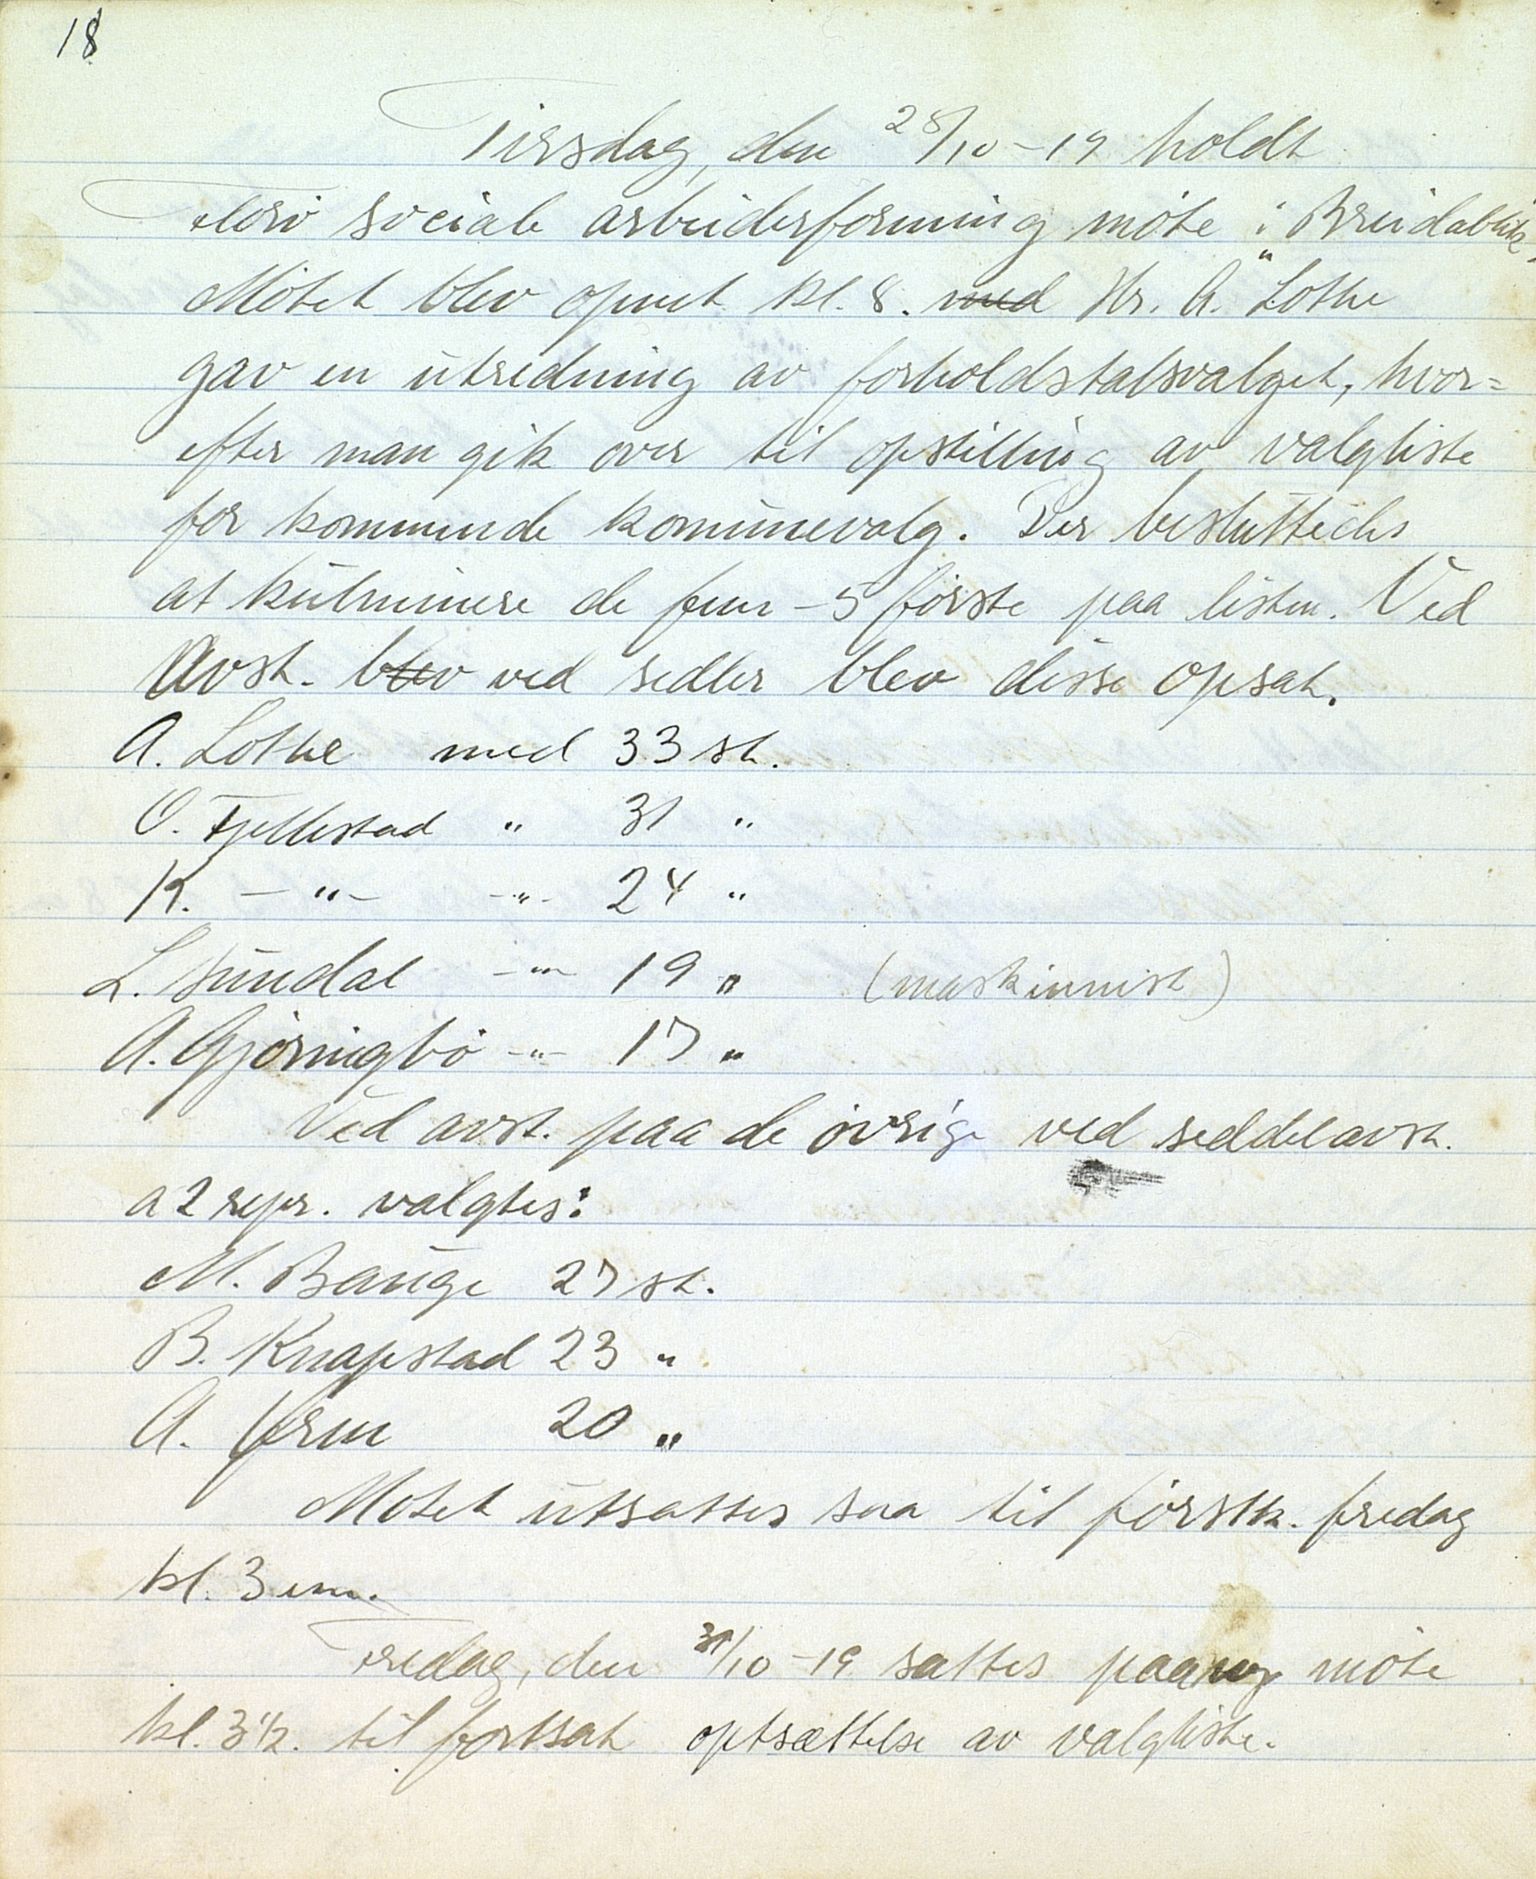 18
Tirsdag, den 28/10-19 holdt
Florø sociale arbeiderforening møte i "Breidablik".
Møtet blev opnet kl. 8. med Hr. A. Lothe
gav en utredning av forholdstalsvalget, hvor=
efter man gik over til opstilling av valgliste
for kommende komunevalg. Der besluttedes
at kulminere de fem -5 første paa listen. Ved
Avst. blev ved sedler blev disse opsat.
A. Lothe med 33 st.
O. Fjellestad " 31 "
K. -"- -"- 24 "
L. Sundal -"- 19 " (maskinnist)
A. Gjøringbø -"- 17 "
Ved avst. paa de øvrige ved seddelavst.
a 2 repr. valgtes:
M. Bauge 27 st.
B. Knapstad 23 "
A. Urm 20 "
Møtet utsattes saa til førstk. fredag
kl. 3 em.
Fredag, den 31/10-19 sattes paany møte
kl. 3½. til fortsat optsættelse av valgliste.